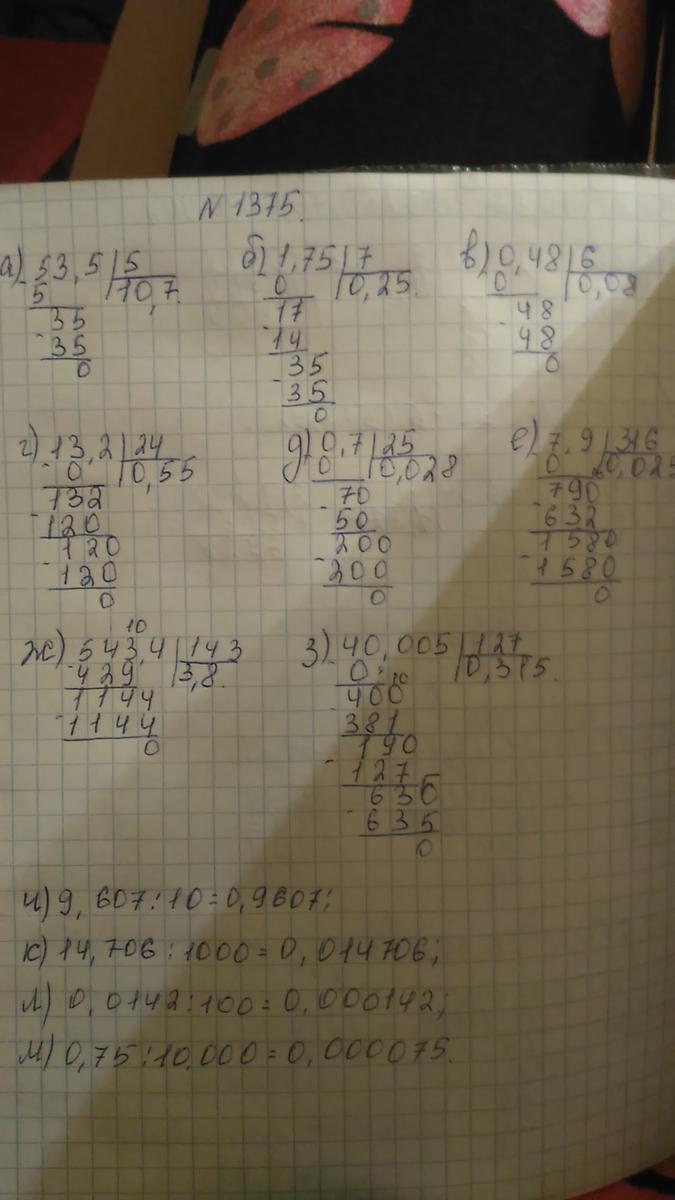 N 1375.
а) 53,5 | 5
5 | 10,7.
35
- 35
0
б) 1,75 | 7
0 | 0,25.
17
- 14
35
- 35
0
в) 0,48 | 6
0 | 0,08
48
- 48
0
г) 13,2 | 24
- 0 | 0,55
132
- 120
120
- 120
0
д) 0,7 | 25
0 | 0,028
70
- 50
200
- 200
0
е) 7,9 | 316
0 | 0,025
790
- 632
1580
- 1580
0
10
ж) 543,4 | 143
- 429 | 3,8.
1144
- 1144
0
з) 40,005 | 127
- 0 | 0,315.
10
400
- 381
190
- 127
635
- 635
0
и) 9,607:10=0,9607;
к) 14,706:1000=0,014706;
л) 0,0142:100=0,000142;
м) 0,75:10.000=0,000075.